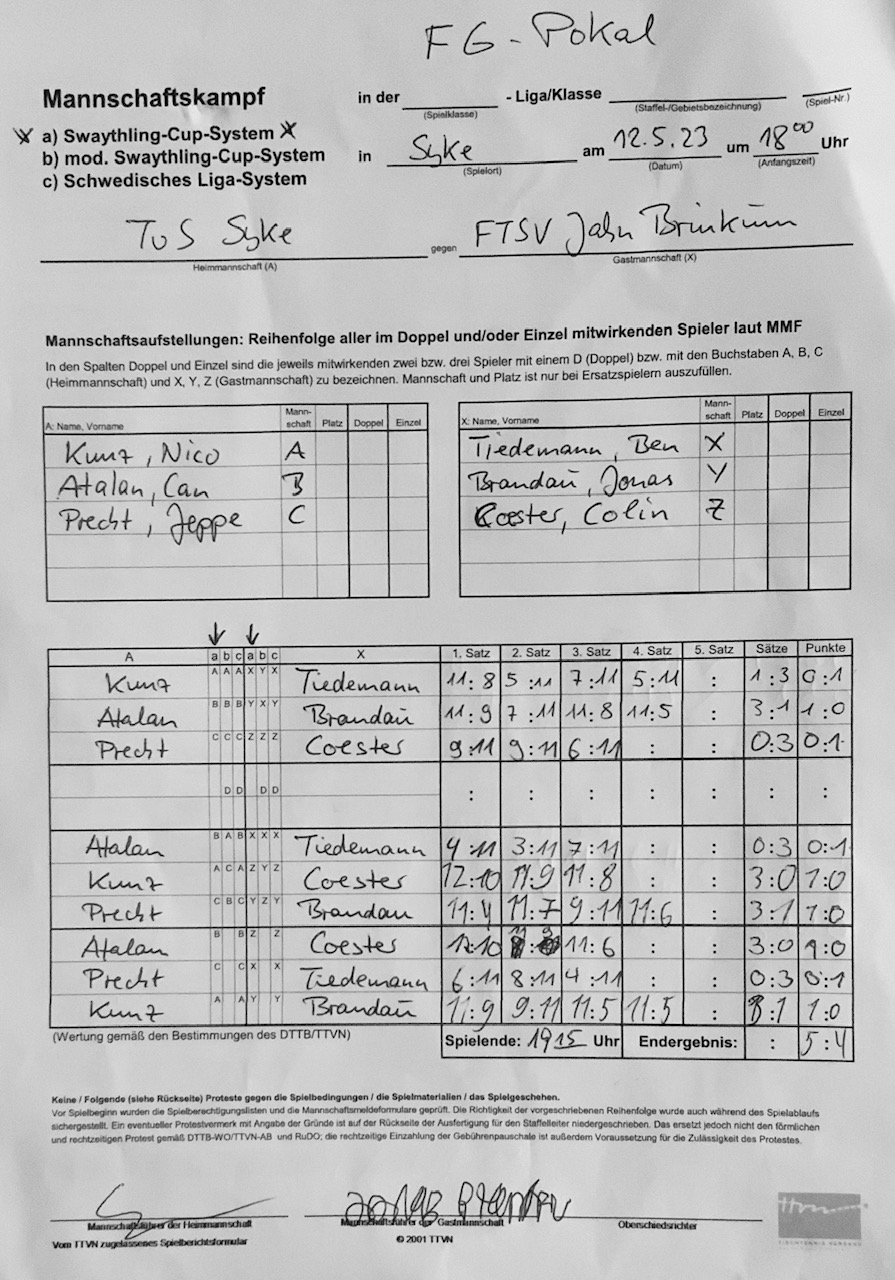 FG-Pokal
Mannschaftskampf in der - Liga/Klasse
(Spielklasse) (Staffel-/Gebietsbezeichnung) (Spiel-Nr.)
X a) Swaythling-Cup-System X
b) mod. Swaythling-Cup-System in Syke am 12.5.23 um 18 00 Uhr
(Spielort) (Datum) (Anfangszeit)
c) Schwedisches Liga-System
TuS Syke gegen FTSV Jahn Brinkum
Heimmannschaft (A) Gastmannschaft (X)
Mannschaftsaufstellungen: Reihenfolge aller im Doppel und/oder Einzel mitwirkenden Spieler laut MMF
In den Spalten Doppel und Einzel sind die jeweils mitwirkenden zwei bzw. drei Spieler mit einem D (Doppel) bzw. mit den Buchstaben A, B, C
(Heimmannschaft) und X, Y, Z (Gastmannschaft) zu bezeichnen. Mannschaft und Platz ist nur bei Ersatzspielern auszufüllen.
A: Name, Vorname Mann-schaft Platz Doppel Einzel X: Name, Vorname Mann-schaft Platz Doppel Einzel
Kunz, Nico A Tiedemann, Ben X
Atalan, Can B Brandau, Jonas Y
Precht, Jeppe C Coester, Colin Z
A a b c a b c X 1. Satz 2. Satz 3. Satz 4. Satz 5. Satz Sätze Punkte
Kunz A A A X Y X Tiedemann 11:8 5:11 7:11 5:11 : 1:3 0:1
Atalan B B B Y X Y Brandau 11:9 7:11 11:8 11:5 : 3:1 1:0
Precht C C C Z Z Z Coester 9:11 9:11 6:11 : : 0:3 0:1
D D D D : : : : : : :
Atalan B A B X X X Tiedemann 4:11 3:11 7:11 : : 0:3 0:1
Kunz A C A Z Y Z Coester 12:10 11:9 11:8 : : 3:0 1:0
Precht C B C Y Z Y Brandau 11:4 11:7 9:11 11:6 : 3:1 1:0
Atalan B B Z Z Coester 12:10 11:6 : : 3:0 1:0
Precht C C X X Tiedemann 6:11 8:11 4:11 : : 0:3 0:1
Kunz A A Y Y Brandau 11:9 9:11 11:5 11:5 : 3:1 1:0
(Wertung gemäß den Bestimmungen des DTTB/TTVN) Spielende: 19 15 Uhr Endergebnis: : 5:4
Keine / Folgende (siehe Rückseite) Proteste gegen die Spielbedingungen / die Spielmaterialien / das Spielgeschehen.
Vor Spielbeginn wurden die Spielberechtigungslisten und die Mannschaftsmeldeformulare geprüft. Die Richtigkeit der vorgeschriebenen Reihenfolge wurde auch während des Spielablaufs
sichergestellt. Ein eventueller Protestvermerk mit Angabe der Gründe ist auf der Rückseite der Ausfertigung für den Staffelleiter niedergeschrieben. Das ersetzt jedoch nicht den förmlichen
und rechtzeitigen Protest gemäß DTTB-WO/TTVN-AB und RuDO; die rechtzeitige Einzahlung der Gebührenpauschale ist außerdem Voraussetzung für die Zulässigkeit des Protestes.
Mannschaftsführer der Heimmannschaft Mannschaftsführer der Gastmannschaft Oberschiedsrichter
Vom TTVN zugelassenes Spielberichtsformular © 2001 TTVN
ttvn
TISCHTENNIS-VERBAND